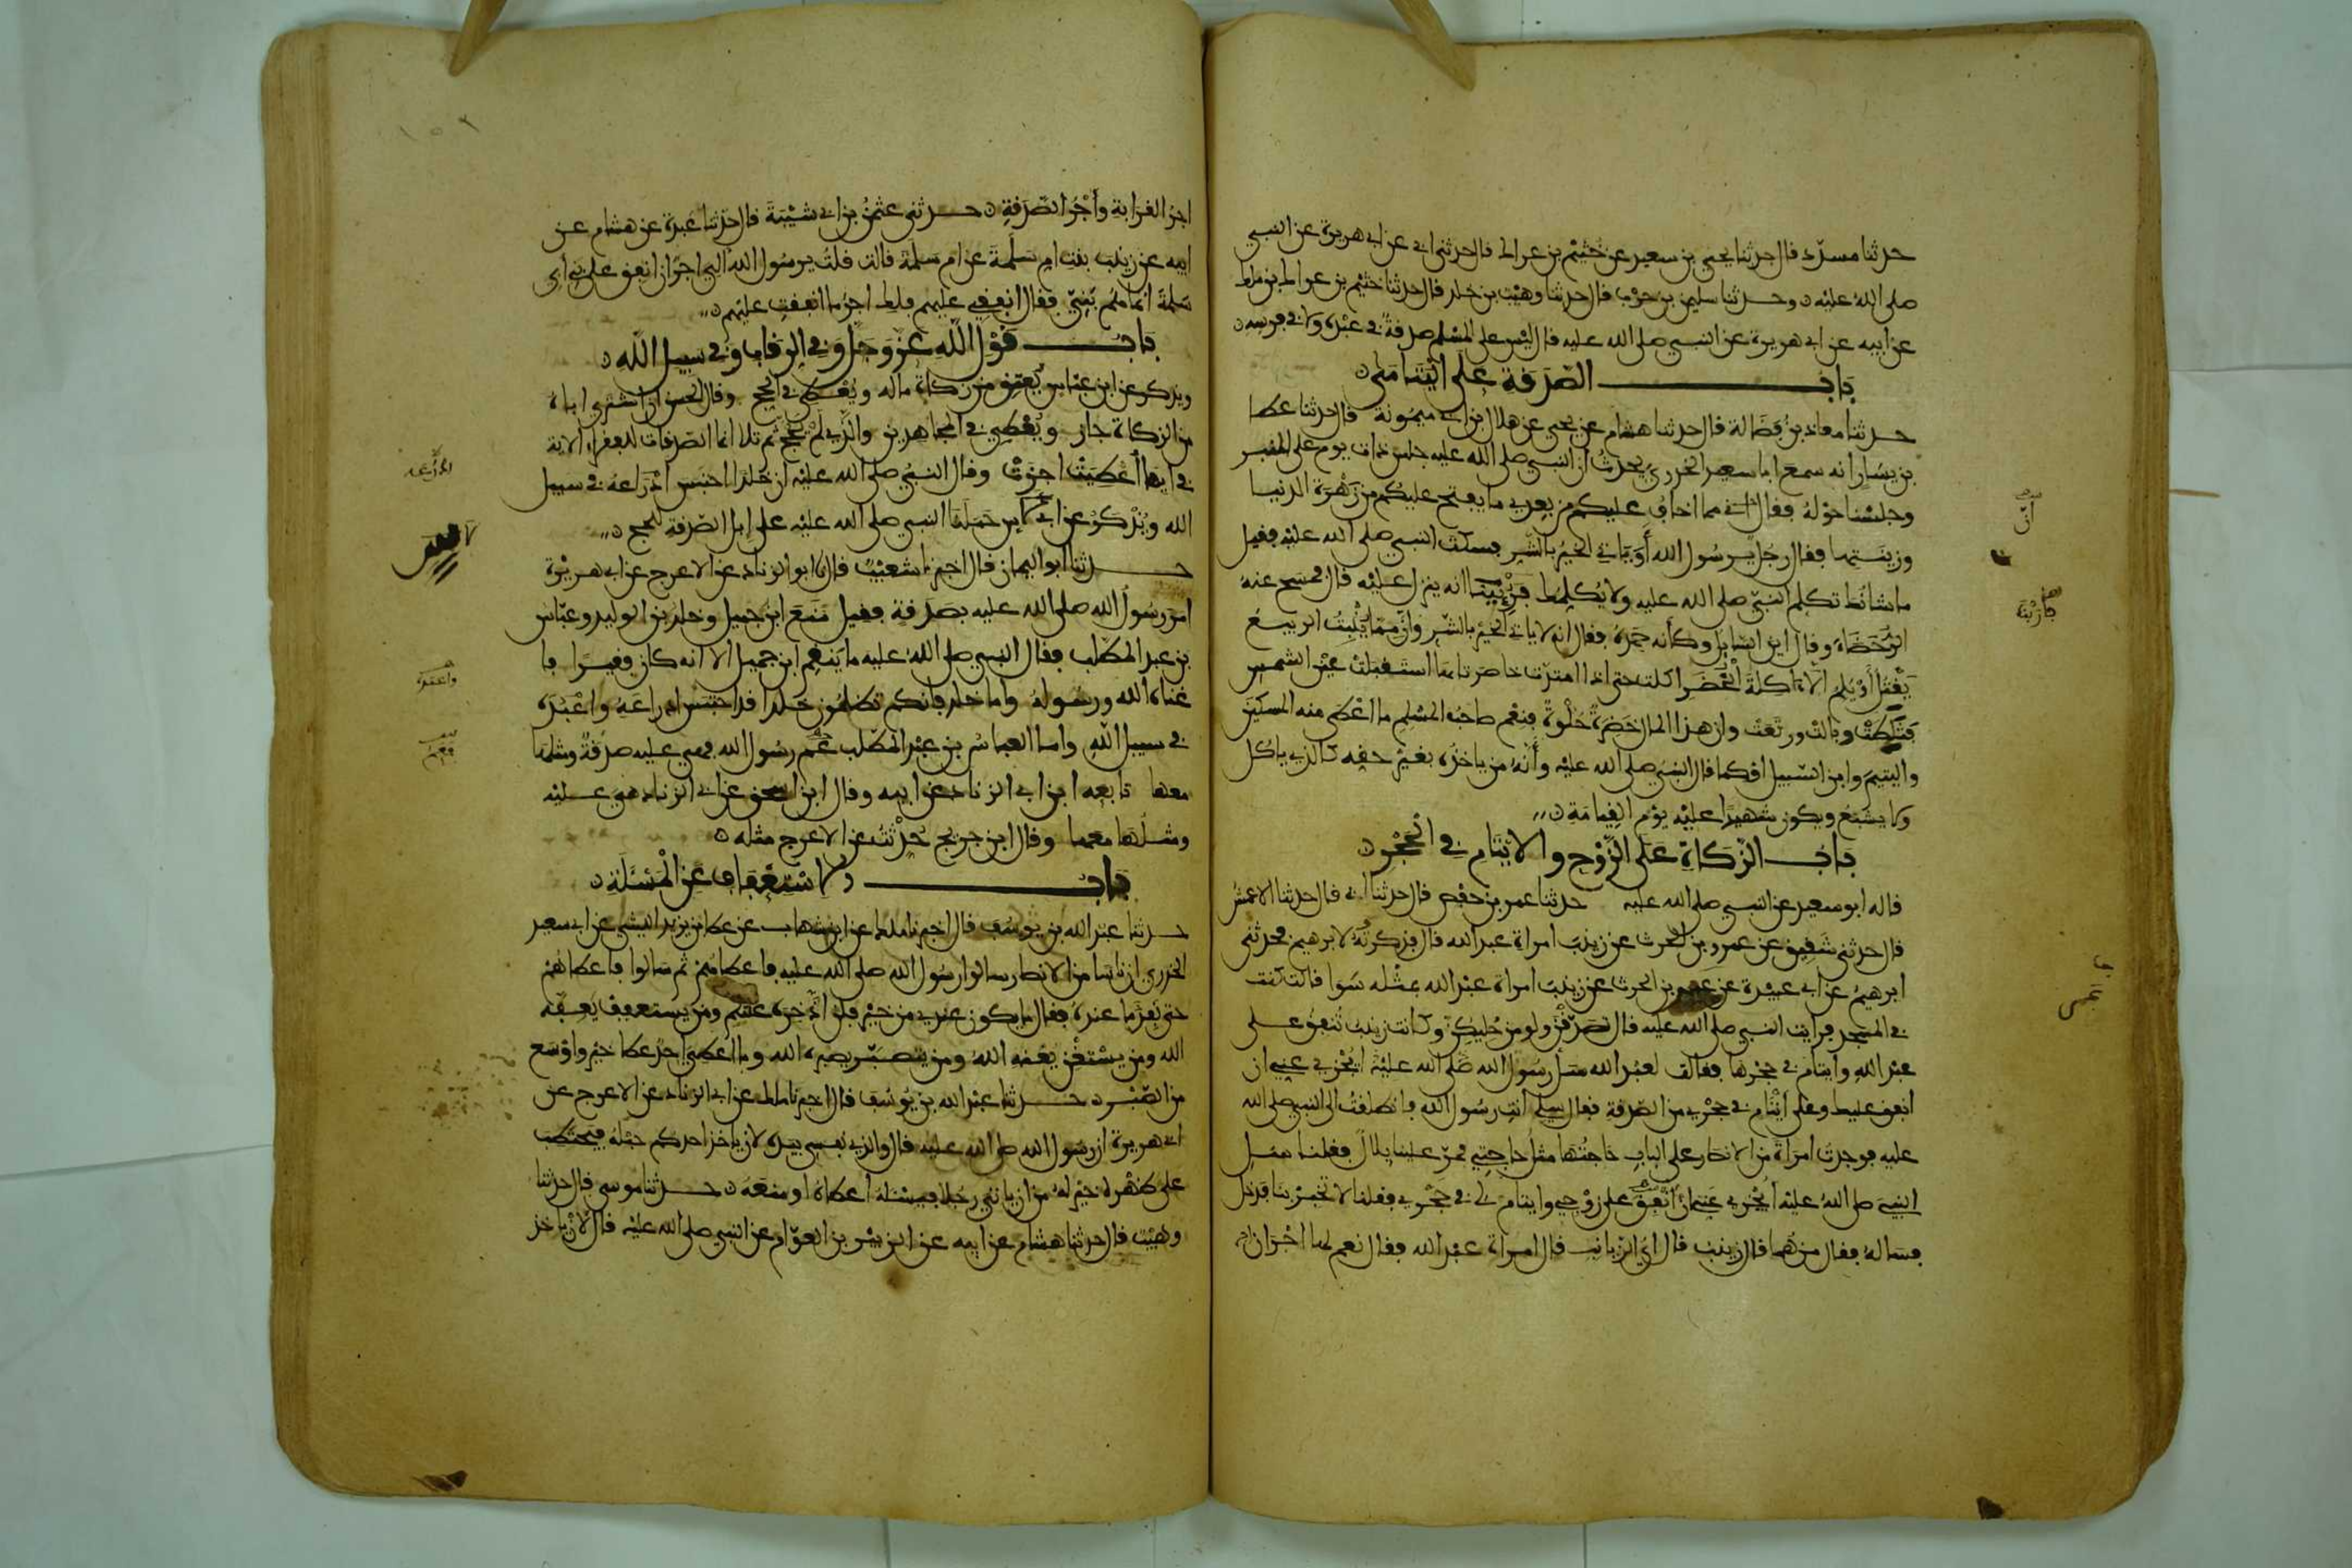 حدثنا مسدد قال حدثنا يحيى بن سعيد عن خثيم بن عراك قال حدثني ابي عن ابي هريرة عن النبي
صلى الله عليه وحدثنا سليمن بن حرب قال حدثنا وهيب بن خلد قال حدثنا خثيم بن عراك بن ملك
عن ابيه عن ابي هريرة عن النبي صلى الله عليه قال ليس على المسلم صدقة في عبده ولا في فرسه
باب الصدقة على اليتامى
حدثنا معاذ بن فضالة قال حدثنا هشام عن يحيى عن هلال ابن ابي ميمونة قال حدثنا عطا
بن يسار انه سمع ابا سعيد الخدري يحدث ان النبي صلى الله عليه جلس ذات يوم على المنبر
وجلسنا حوله فقال اني مما اخاف عليكم من بعدي ما يفتح عليكم من زهرة الدنيا
وزينتها فقال رجل يرسول الله أو ياتي الخير بالشر فسكت النبي صلى الله عليه فقيل
ما شانك تكلم النبي صلى الله عليه ولا يكلمك فرئينا انه ينزل عليه قال فمسح عنه
الرحضاء وقال اين السايل وكأنه حمده فقال انه لا ياتي الخير بالشر وان مما ينبت الربيع
يقتل أو يلم الا اكلة الخضرا كلت حتى اذا امتدت خاصرتاها استقبلت عين الشمس
فثلطت وبالت ورتعت وان هذا المال خضرة حلوة فنعم صاحب المسلم ما اعطى منه المسكين
واليتيم وابن السبيل او كما قال النبي صلى الله عليه وأنه من ياخذه بغير حقه كالذي ياكل
ولا يشبع ويكون شهيدا عليه يوم القيامة
باب الزكاة على الزوج والايتام في الحجر
قاله ابو سعيد عن النبي صلى الله عليه حدثنا عمر بن حفص قال حدثنا ابي قال حدثنا الاعمش
قال حدثني شقيق عن عمرو بن الحرث عن زينب امراة عبد الله قال فذكرته لابرهيم فحدثني
ابرهيم عن ابي عبيدة عن عمرو بن الحرث عن زينب امراة عبد الله بمثله سوا قالت كنت
في المسجد فرايت النبي صلى الله عليه قال تصدقن ولو من حليكن وكانت زينب تنفق على
عبد الله وايتام في حجرها فقالت لعبد الله سل رسول الله صلى الله عليه ايجزي عني ان
انفق عليك وعلى ايتام في حجري من الصدقة فقال سلي انت رسول الله فانطلقت الى النبي صلى الله
عليه فوجدت امراة من الانصار على الباب حاجتها مثل حاجتي فمر علينا بلال فقلنا سل
النبي صلى الله عليه ايجزي عني ان انفق على زوجي وايتام لي في حجري فقلنا لا تخبر بنا فدخل
فساله فقال من هما قال زينب قال اي الزيانب قال امراة عبد الله فقال نعم لها اجران
اجر القرابة وأجر الصدقة حدثني عثمن بن ابي شيبة قال حدثنا عبدة عن هشام عن
ابيه عن زينب بنت ام سلمة عن ام سلمة قالت قلت يرسول الله الي اجر ان انفق على بني ابي
سلمة انما هم بني فقال انفقي عليهم فلك اجر ما انفقت عليهم
باب قول الله عز وجل وفي الرقاب وفي سبيل الله
ويذكر عن ابن عباس يعتق من زكاة ماله ويعطى في الحج وقال الحسن ان اشترى اباه
من الزكاة جاز ويعطي في المجاهدين والذي لم يحج ثم تلا انما الصدقات للفقراء الاية
في ايها اعطيت اجزت وقال النبي صلى الله عليه ان خلدا احتبس ادراعه في سبيل
الله ويذكر عن ابي لاس حملنا النبي صلى الله عليه على ابل الصدقة للحج
حدثنا ابو اليمان قال اخبرنا شعيب قال نا ابو الزناد عن الاعرج عن ابي هريرة
امر رسول الله صلى الله عليه بصدقة فقيل منع ابن جميل وخلد بن الوليد وعباس
بن عبد المطلب فقال النبي صلى الله عليه ما ينقم ابن جميل الا انه كان فقيرا فا
غناه الله ورسوله واما خلد فانكم تظلمون خلدا قد احتبس ادراعه واعبده
في سبيل الله واما العباس بن عبد المطلب عم رسول الله فهي عليه صدقة ومثلها
معها تابعه ابن ابي الزناد عن ابيه وقال ابن اسحق عن ابي الزناد هي عليه
ومثلها معها وقال ابن جريج حدثت عن الاعرج مثله
باب الاستعفاف عن المسئلة
حدثنا عبد الله بن يوسف قال اخبرنا ملك عن ابن شهاب عن عطا بن يزيد الليثي عن ابي سعيد
الخدري ان ناسا من الانصار سالوا رسول الله صلى الله عليه فاعطاهم ثم سالوا فاعطاهم
حتى نفد ما عنده فقال ما يكون عندي من خير فلن ادخره عنكم ومن يستعفف يعفه
الله ومن يستغن يغنه الله ومن يتصبر يصبره الله وما اعطي احد عطا خير واوسع
من الصبر حدثنا عبد الله بن يوسف قال اخبرنا ملك عن ابي الزناد عن الاعرج عن
ابي هريرة ان رسول الله صلى الله عليه قال والذي نفسي بيده لان ياخذ احدكم حبله فيحتطب
على ظهره خير له من ان ياتي رجلا فيسئله اعطاه او منعه حدثنا موسى قال حدثنا
وهيب قال حدثنا هشام عن ابيه عن الزبير بن العوام عن النبي صلى الله عليه قال لأن ياخذ